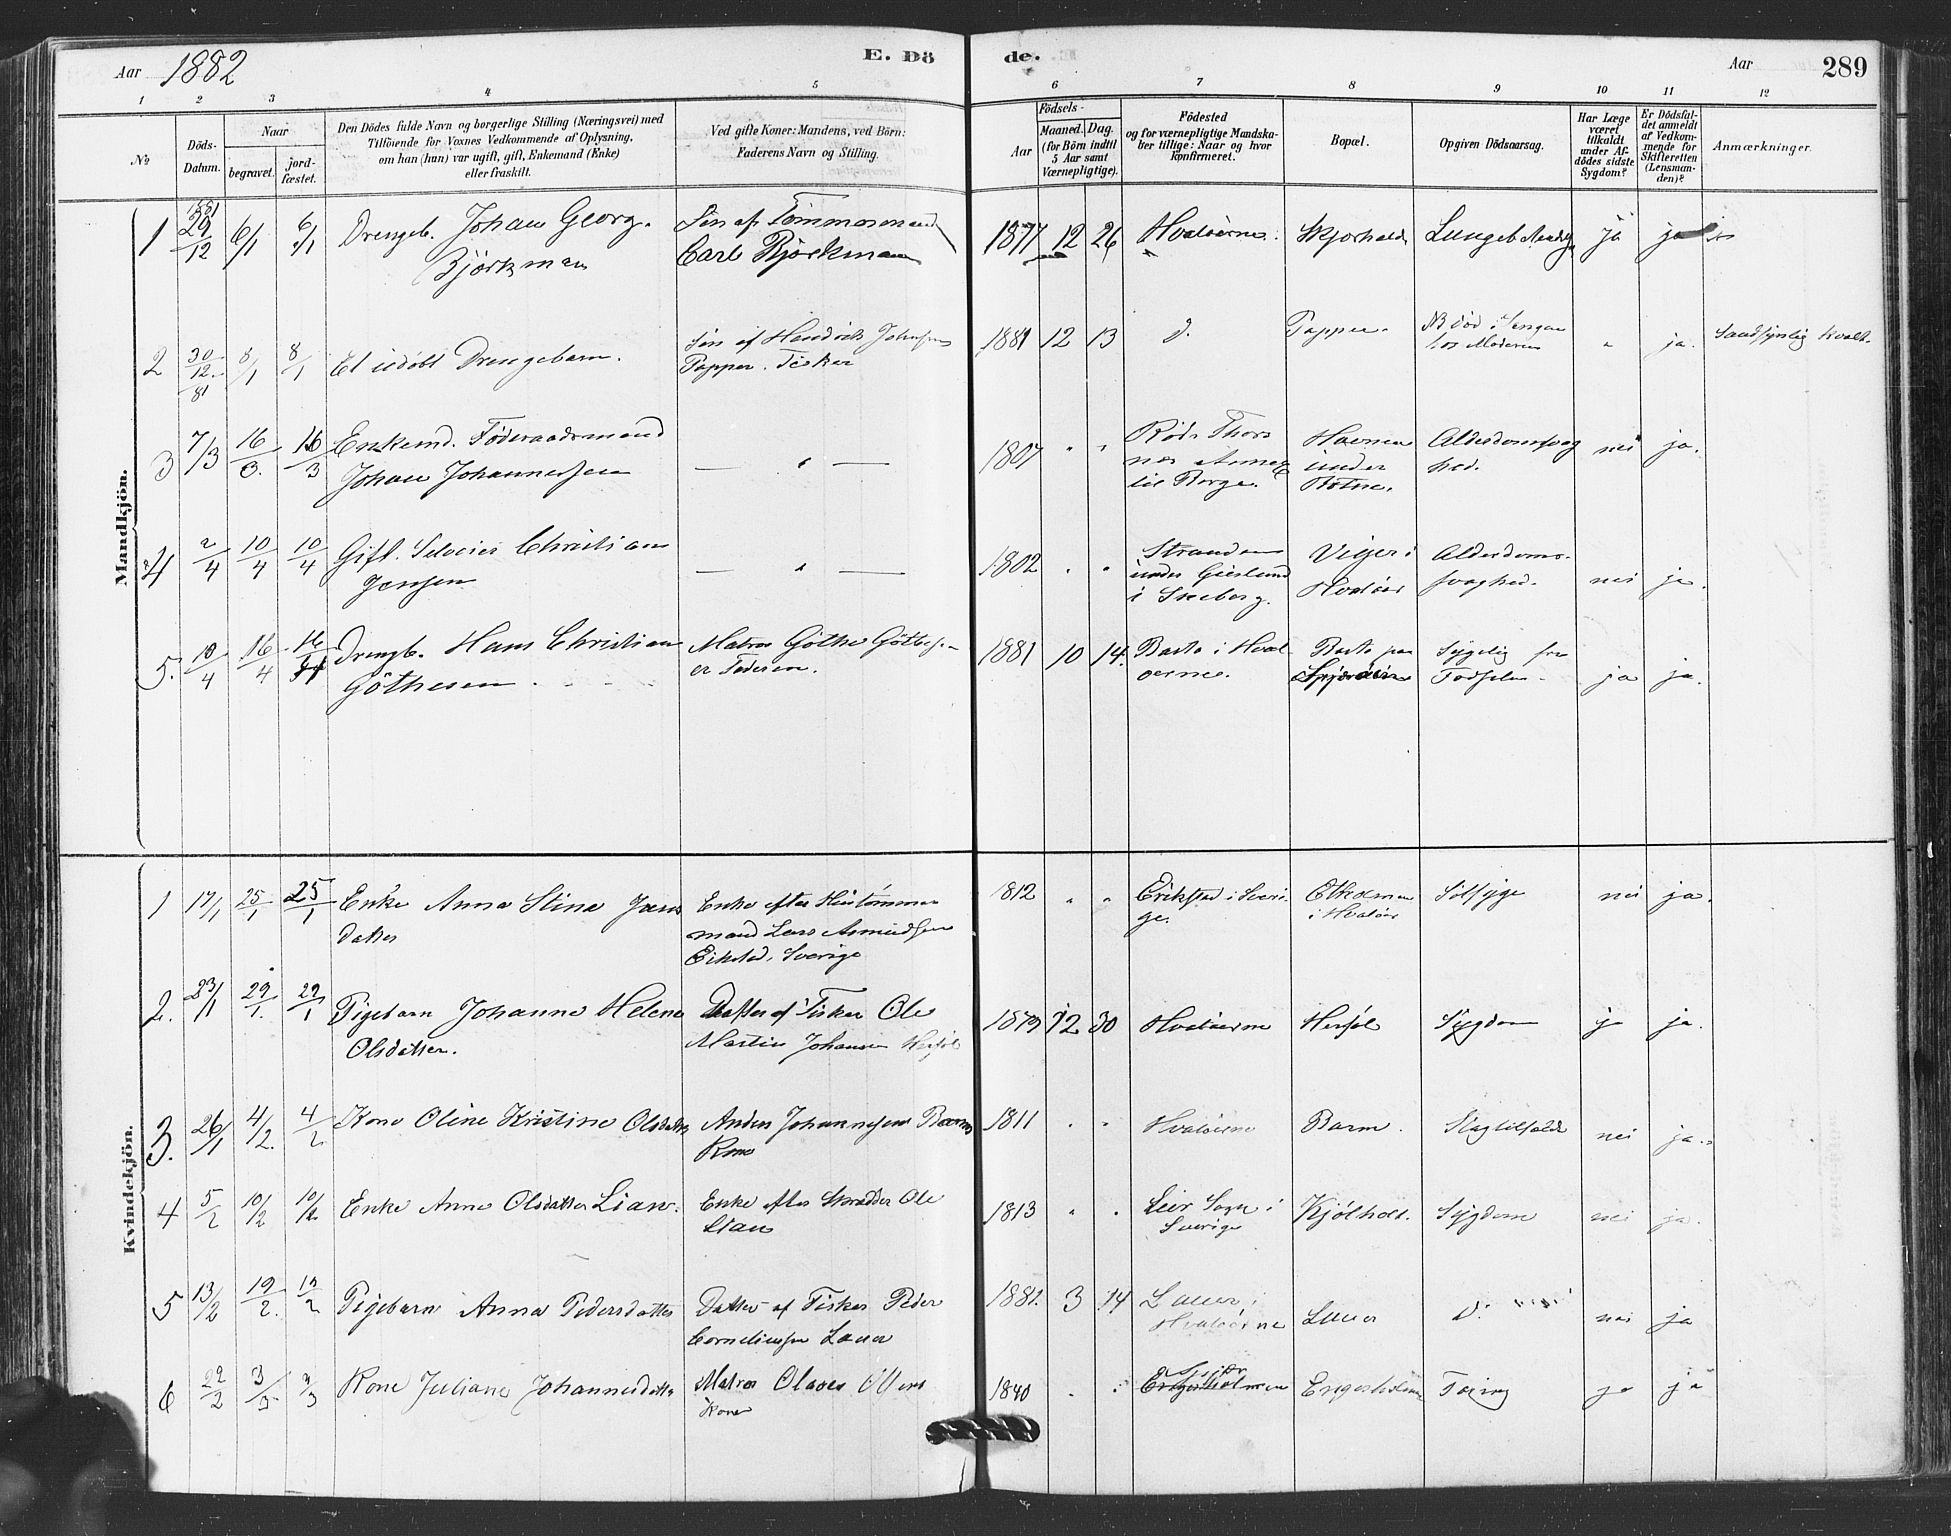 Aar 1882 E. Dö
de. Aar 289
1 2 3 4 5
6 7 8 9 10 11 12
No
Döds-
Datum.
Naar
begravet.
jord-
fæstet.
Den Dödes fulde Navn og borgerlige Stilling (Næringsvei) med
Tilföiende for Voxnes Vedkommende af Oplysning,
om han (hun) var ugift, gift, Enkemand (Enke)
eller fraskilt.
Ved gifte Koner: Mandens, ved Börn:
Faderens Navn og Stilling.
Födsels-
Aar
Maaned. Dag.
(for Börn indtil
5 Aar samt
Værnepligtige).
Födested
og for værnepligtige Mandska-
ber tillige: Naar og hvor
konfirmeret.
Bopæl.
Opgiven Dödsaarsag.
Har Læge
været
tilkaldt
under Af-
dödes sidste
Sygdom?
Er Dödsfal-
det anmeldt
af Vedkom-
mende for
Skifteretten
(Lensman-
den)?
Anmærkninger.
Mandkjön.
1 1881 29/12 6/1 6/1 Drengeb. Johan Georg
Björkman
Sön af Tömmermand
Carl Björkman
1877 12 26 Hvaløerne. Skjærhald ja ja
2 30/12 81 8/1 8/1 Et udöbt Drengebarn.
Sön af Hendrik Johnsen
Papper. Fisker
1881 12 13 d. Papper.
Död i Sengen
hos Moderen
" ja. Sandsynlig kvalt.
3 7/3 16/3. 16/3 Enkemd. Föderaadsmand
Johan Johannessen
— " —
1807 " "
til Borge.
Havnen
under
Botne.
Alderdomssvag
hed.
nei ja.
4 2/4 10/4 10/4 Gift. Christian
Jensen
— " —
1802 " "
Stranden
under
i Skeberg.
Viger i
Hvaløer
Alderdoms-
svaghed.
nei ja.
5. 10/4 16/4 16/4 Drengb. Hans Christian
Göthesen
Matros Göthe Göthes-
er Faderen.
1881 10 14. Basto i Hval
øerne.
Basto paa
Spjærøen
Sygelig fra
Födselen
ja ja.
Kvindekjön.
1 17/1 25/1 25/1 Enke Anna Stina Jans
datter
Enke efter Hustömmer
mand Lars Asmundsen
Eikstad, Sverige
1812 " " Erikstad i Sveri-
ge.
i Hvaløer
nei ja.
2. 23/1 29/1. 29/1 Pigebarn Johanne Helene
Olsdatter.
Datter af Fisker Ole
Martin Johansen Herføl
1879 12 30 Hvaløerne Herføl Sygdom ja ja.
3. 26/1 4/2. 4/2 Kone Oline Kristine Olsdatter
Anders Johannesens Barm
Kone
1811 " " Hvaløerne Barm. Slagtilfælde nei ja.
4 5/2 10/2 10/2 Enke Anne Olsdatter Lian.
Enke efter Skrædder Ole
Lian
1813 " " Leir Sogn i
Sverige
Kjölholt. Sygdom nei ja.
5 13/2 19/2. 19/2 Pigebarn Anna Pedersdatter
Datter af Fisker Peder
Corneliussen Lauer
1881. 3 14 Lauer i
Hvaløerne
Lauer D. nei ja
6 22/2 3/3 3/3 Kone Juliane Johannesdatter
Matros Olaves Olsens
Kone
1840 " "
Engesholmen Engesholmen Tæring ja ja